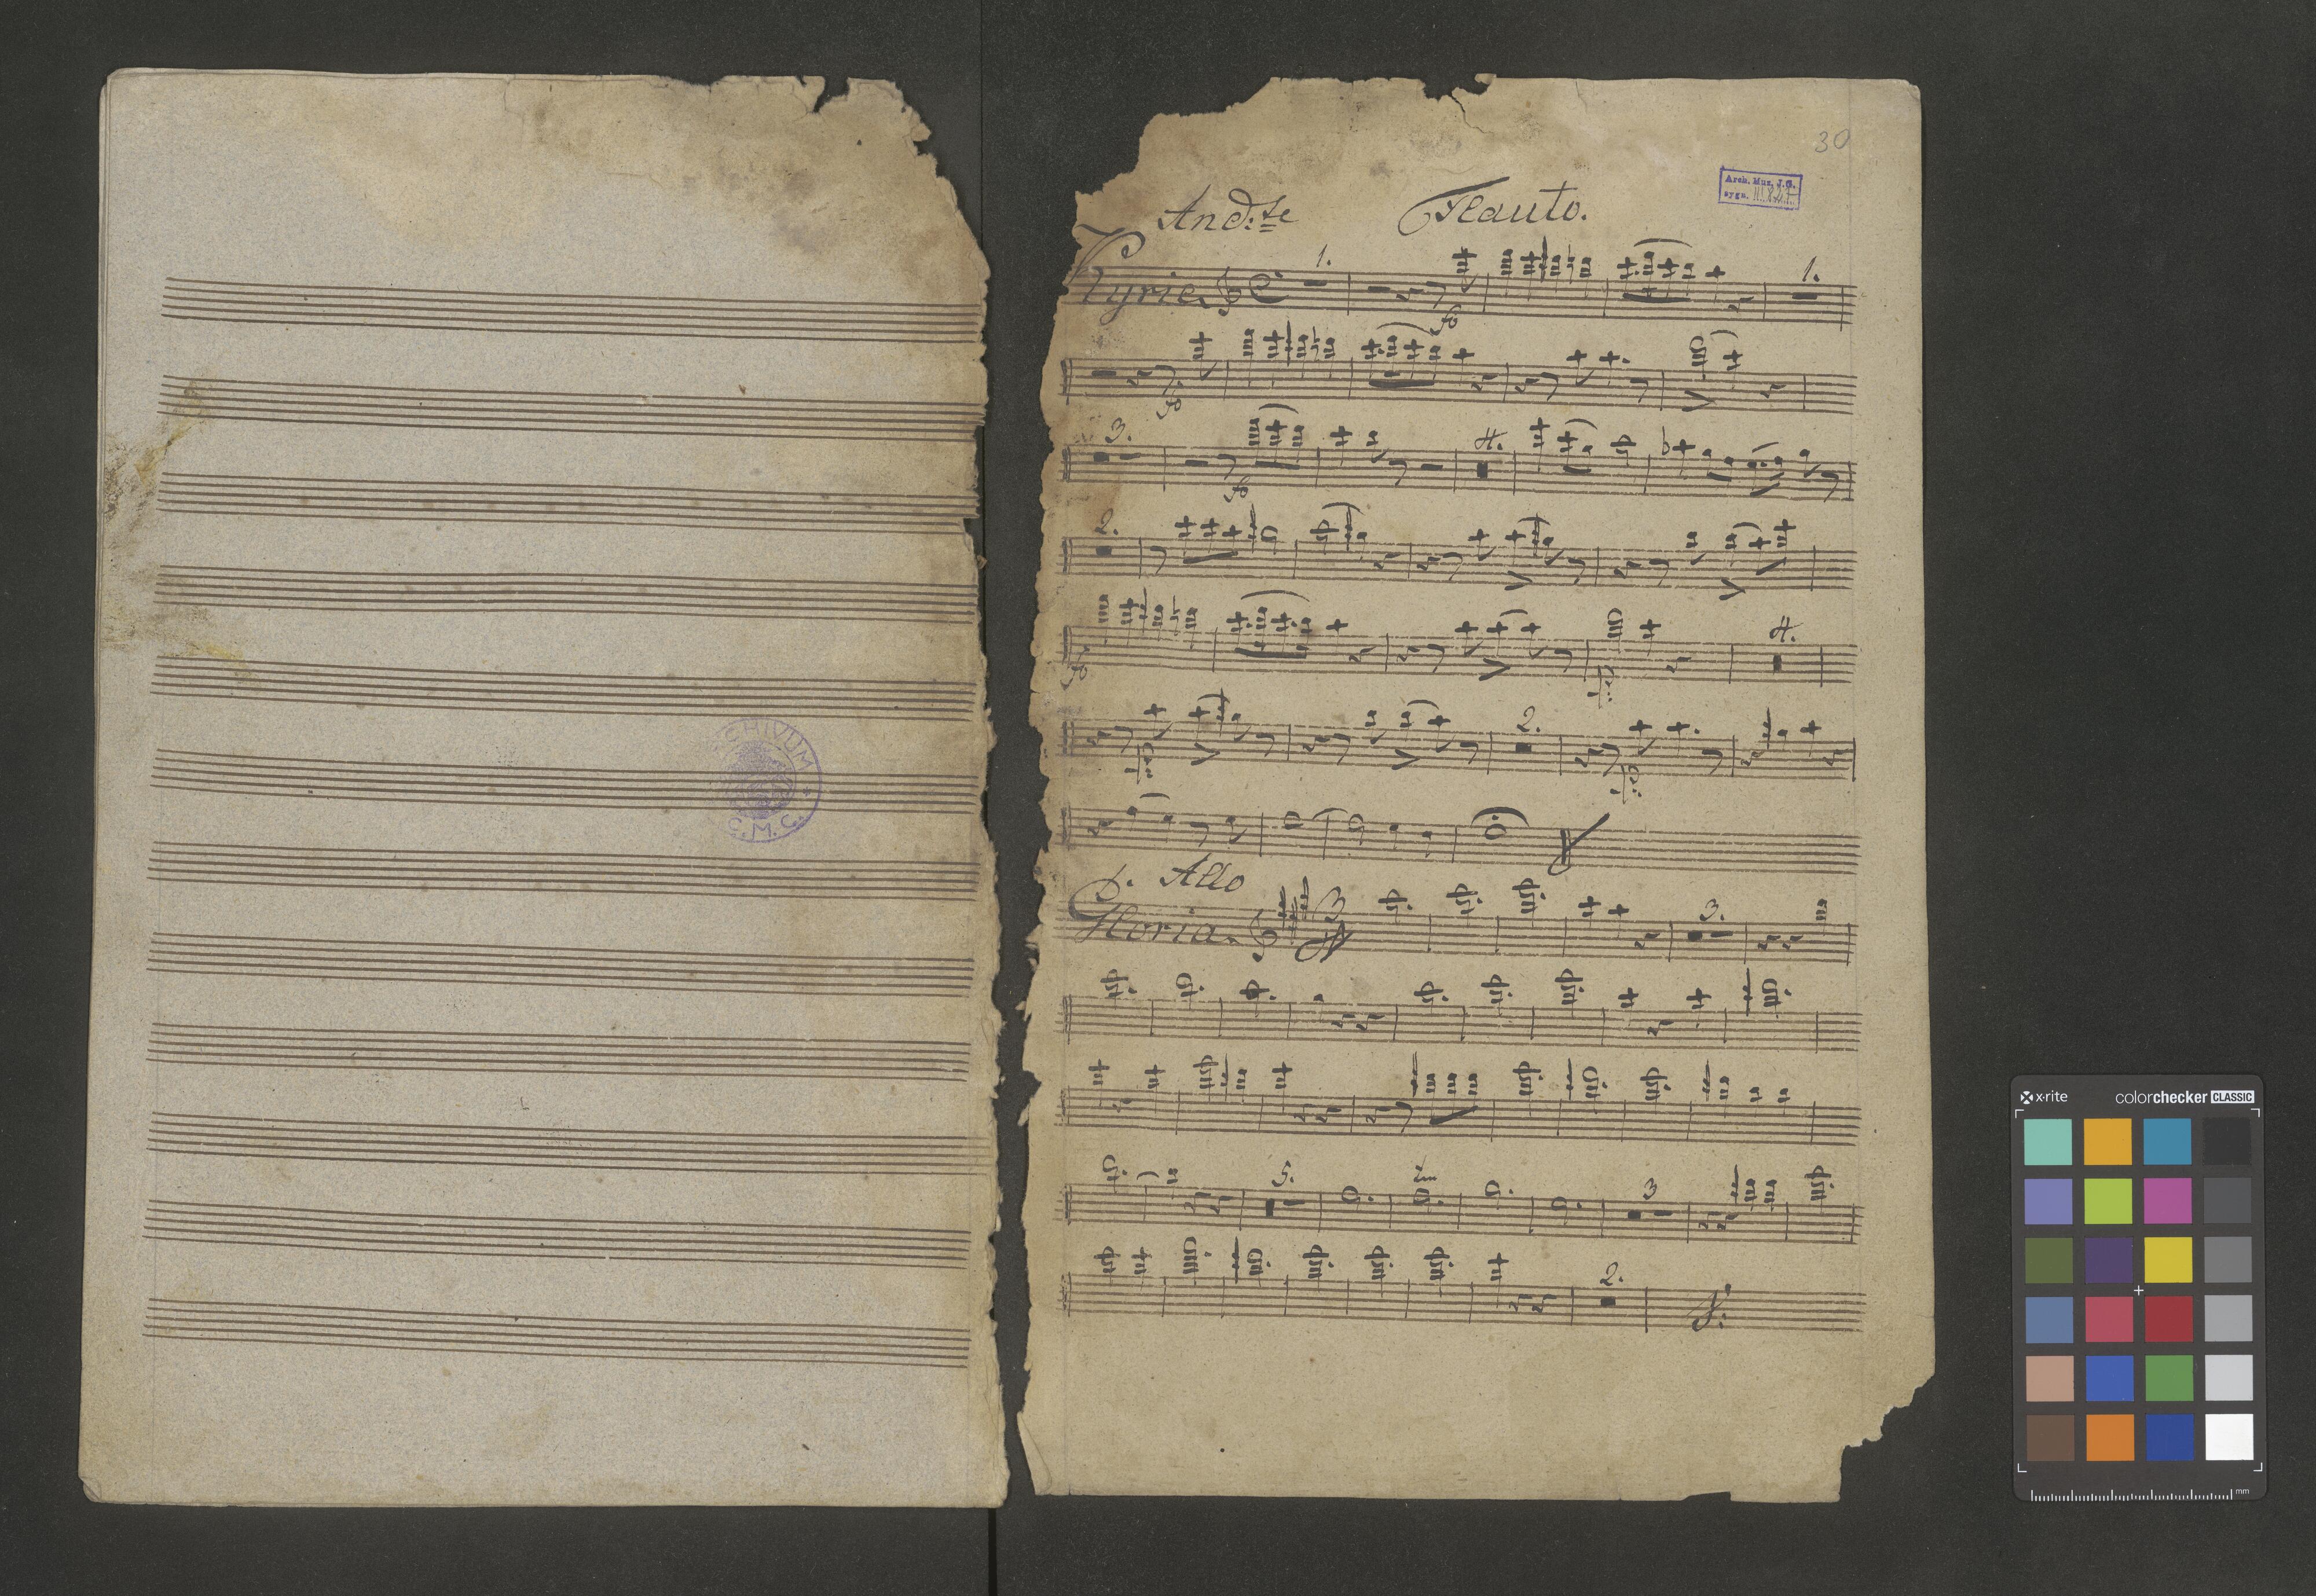 CHIVUM
C.M.C.
30
Arch. Muz. J.G.
sygn.
And:te Flauto.
Kyrie 1. 1.
fo
fo
3. 4.
fo
2.
4.
fo
2.
1. Allo
Gloria 3 3.
5. 3
2.
x-rite colorchecker CLASSIC
mm